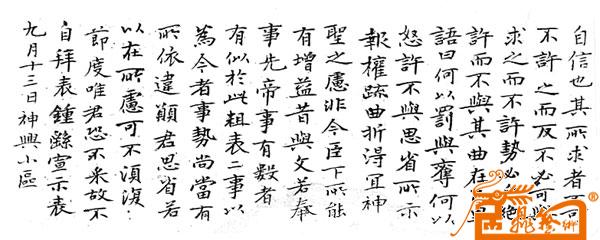 自信也其所求者不可
不許之而反不必可與
求之而不許勢必絕
許而不與其曲在
語曰何以罰與奪何以
怒許不與思省所示
報權疏曲折得宜神
聖之慮非今臣下所能
有增益昔與文若奉
事先帝事有數者
有似於此粗表二事以
為今者事勢尚當有
所依違顛君思省若
以在所慮可不須復
節度唯君恐不采故不
自拜表鍾繇宣示表
九月十三日神興小區